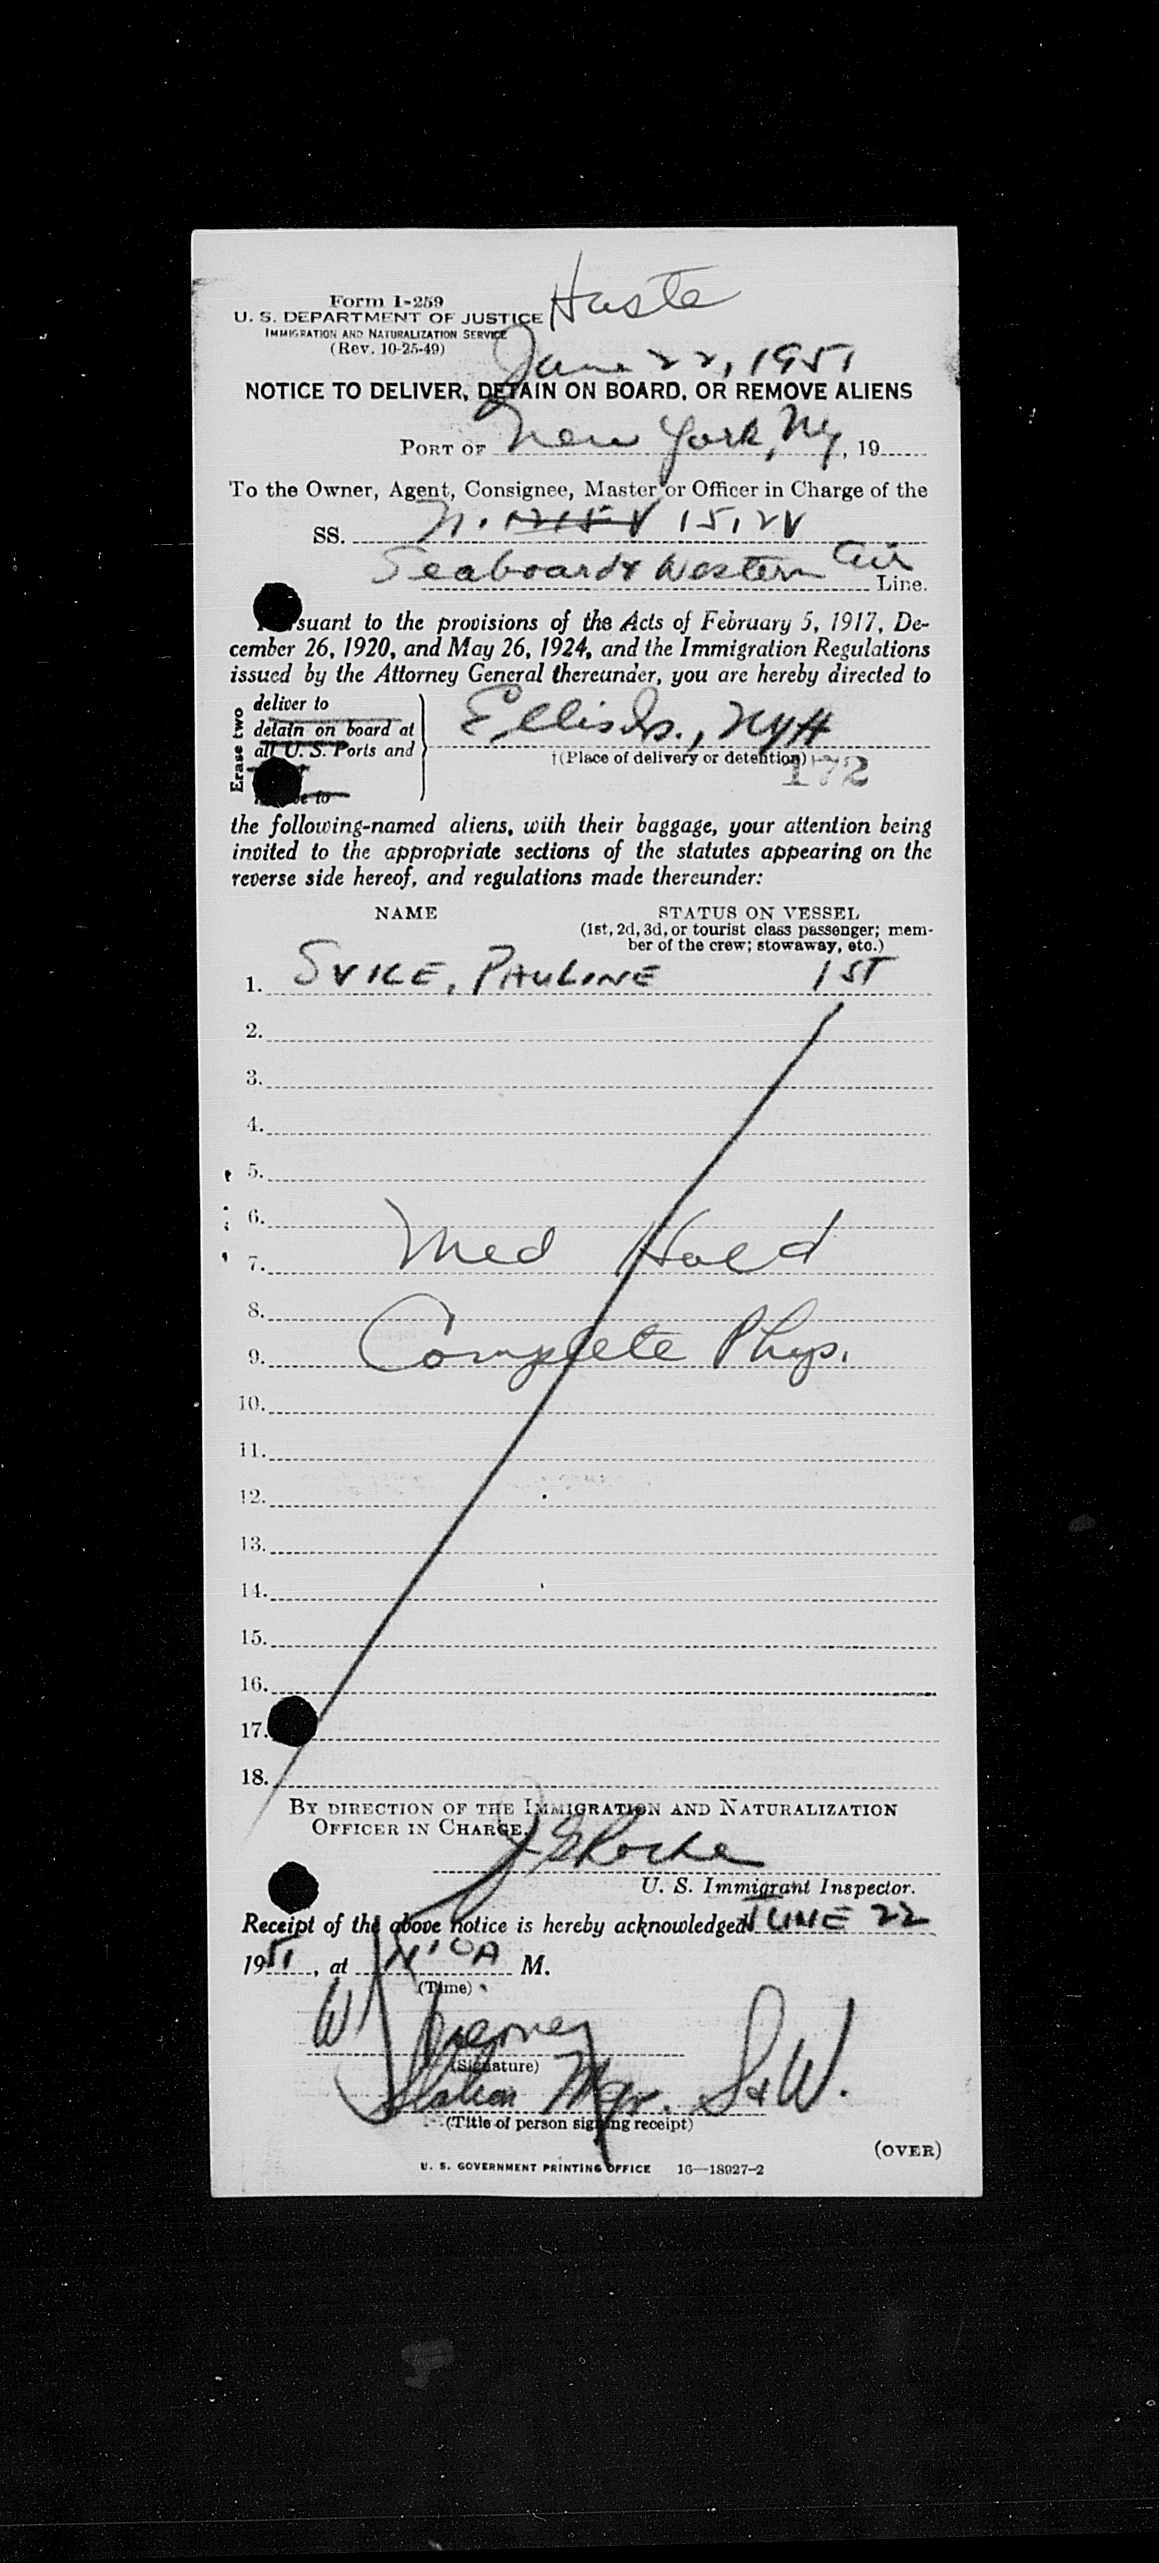 Haste
Form I-259
U. S. DEPARTMENT OF JUSTICE
IMMIGRATION AND NATURALIZATION SERVICE
(Rev. 10-25-49)
June 22, 1951
NOTICE TO DELIVER, DETAIN ON BOARD, OR REMOVE ALIENS
PORT OF New York, NY, 19
To the Owner, Agent, Consignee, Master or Officer in Charge of the
SS. N. 1512V
Seaboard & Western Air Line.
suant to the provisions of the Acts of February 5, 1917, De-
cember 26, 1920, and May 26, 1924, and the Immigration Regulations
issued by the Attorney General thereunder, you are hereby directed to
Erase two
deliver to
detain on board at
all U. S. Ports and
to
Ellis Is., NYH
†(Place of delivery or detention)
172
the following-named aliens, with their baggage, your attention being
invited to the appropriate sections of the statutes appearing on the
reverse side hereof, and regulations made thereunder:
NAME STATUS ON VESSEL
(1st, 2d, 3d, or tourist class passenger; mem-
ber of the crew; stowaway, etc.)
1. SVILE, PAULINE 1ST
2.
3.
4.
5.
6.
7. Med Hold
8.
9. Complete Phys.
10.
11.
12.
13.
14.
15.
16.
17.
18.
BY DIRECTION OF THE IMMIGRATION AND NATURALIZATION
OFFICER IN CHARGE.
J G Roche
U. S. Immigrant Inspector.
Receipt of the above notice is hereby acknowledged JUNE 22
1951, at A M.
(Time)
W
(Signature)
Station Mgr. S & W.
(Title of person signing receipt)
(OVER)
U. S. GOVERNMENT PRINTING OFFICE 16—18927-2